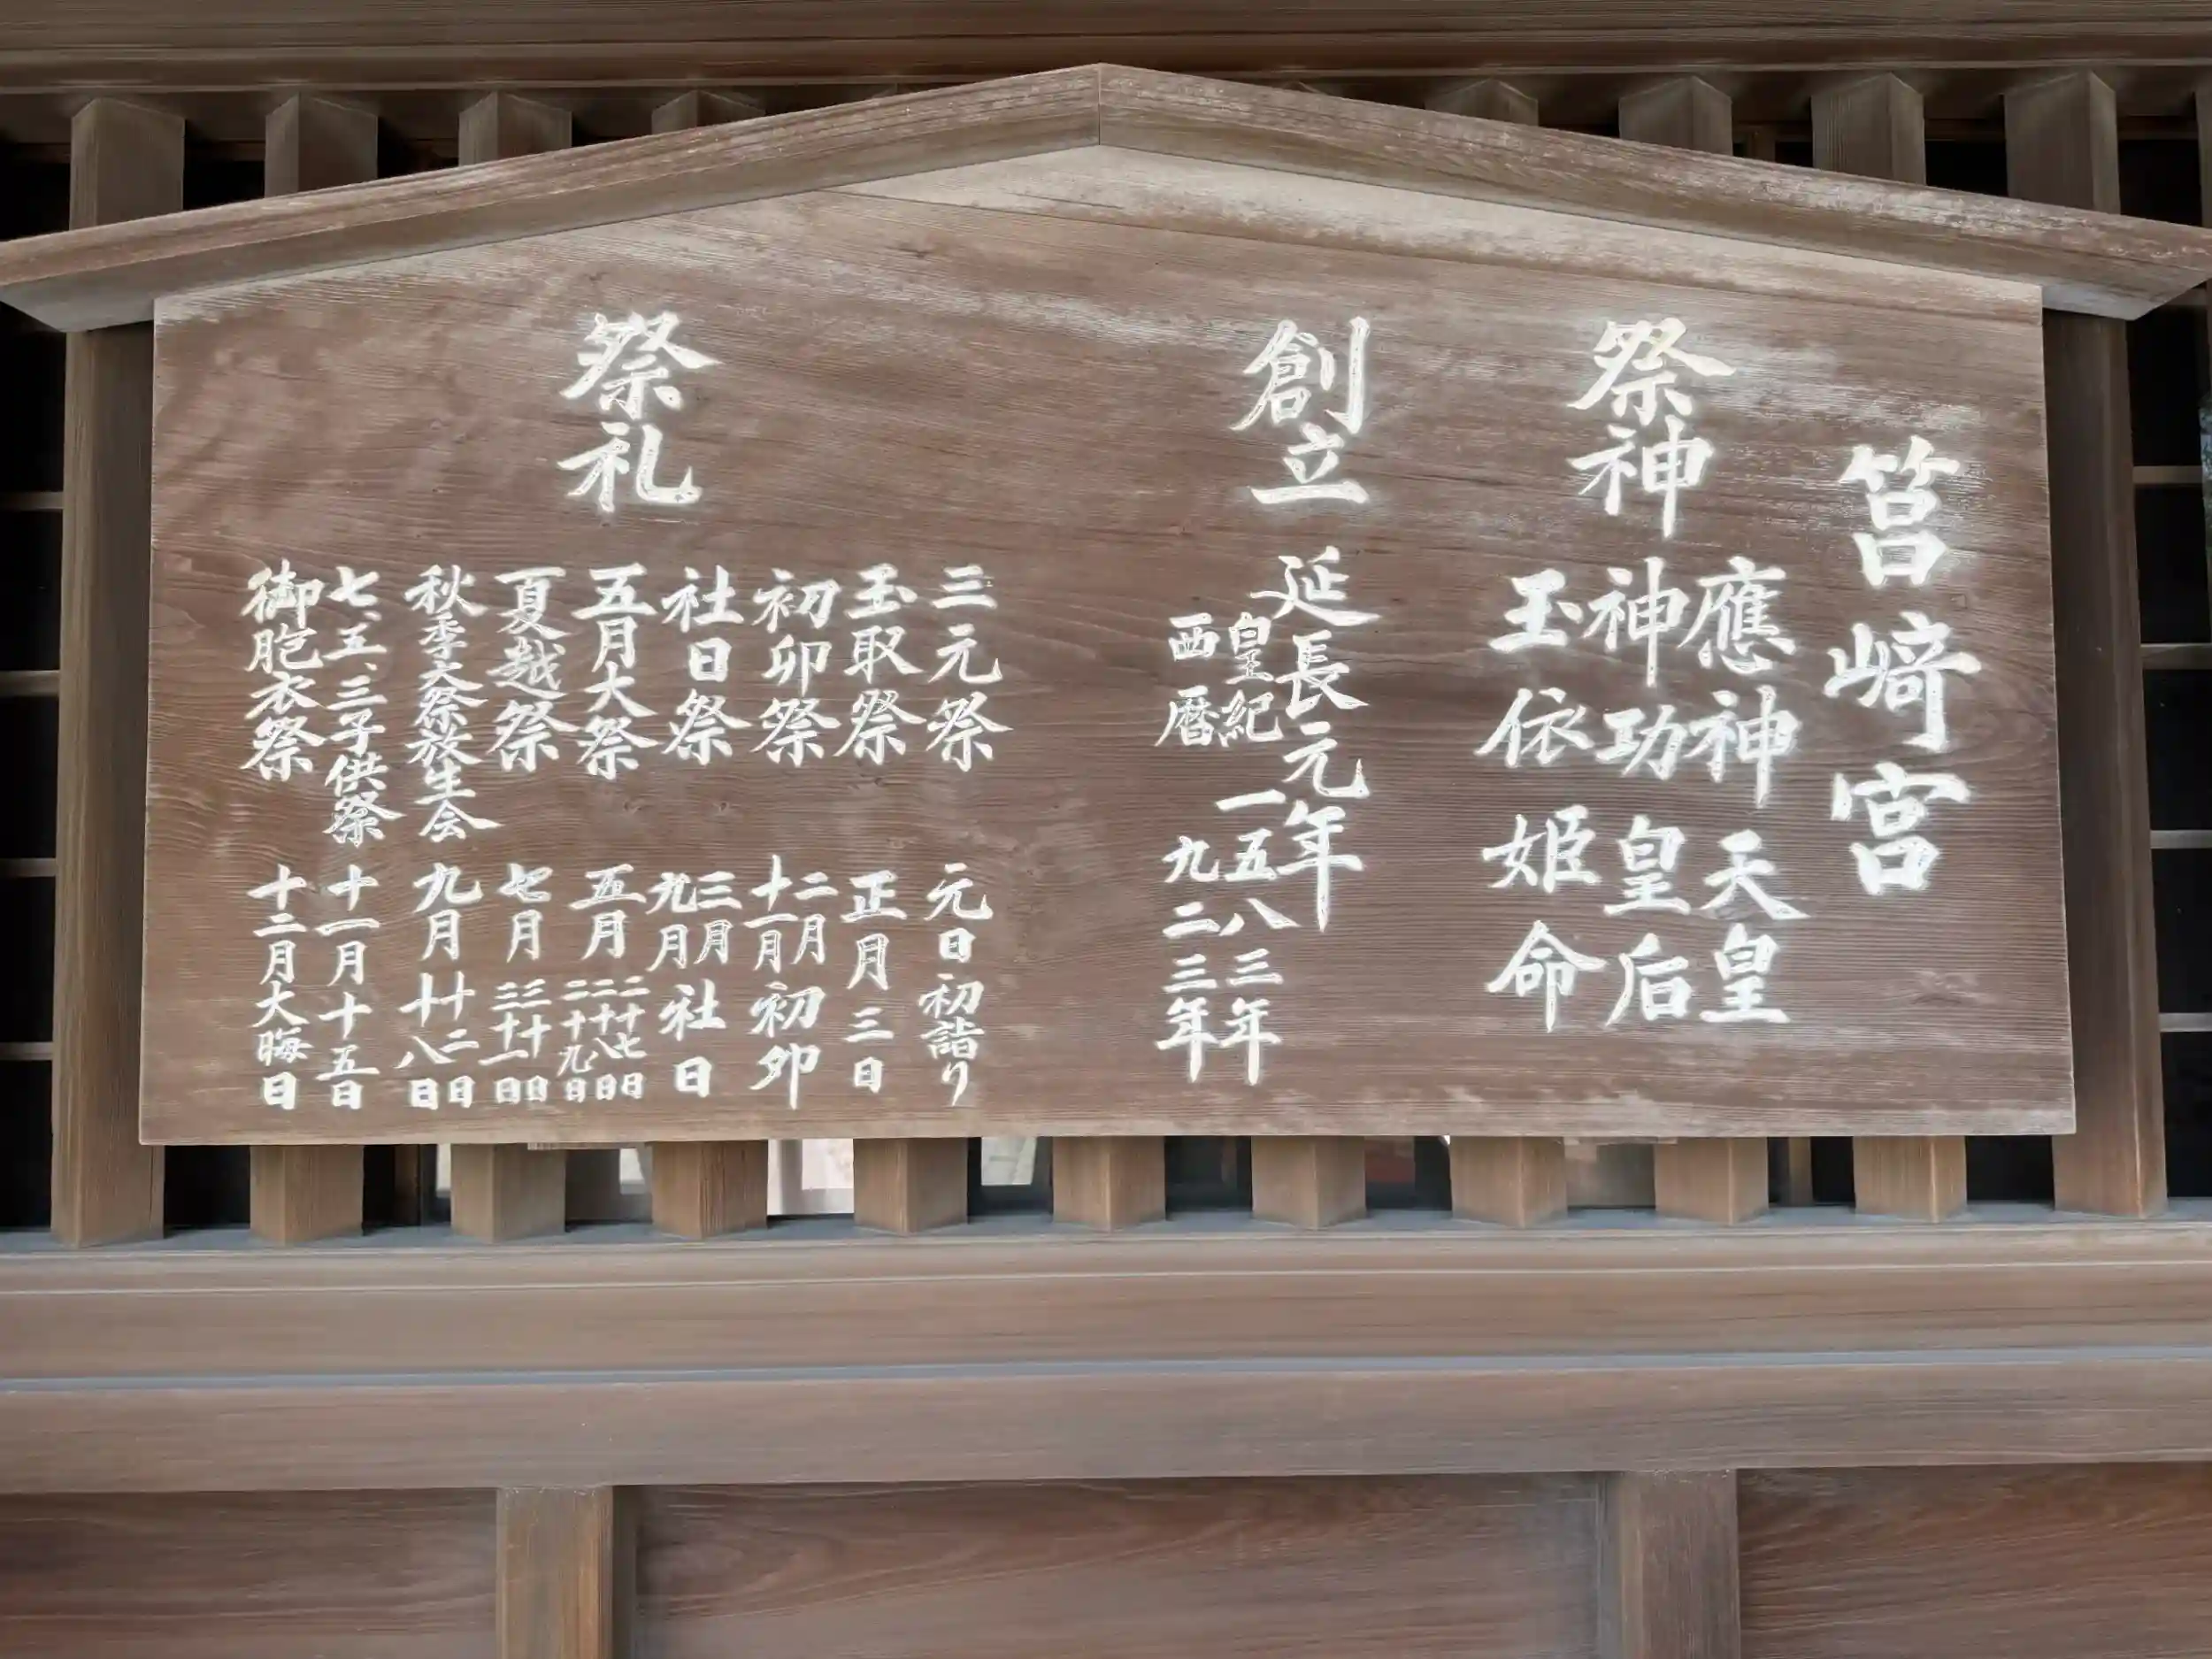 筥﨑宮
祭神
應神天皇
神功皇后
玉依姫命
創立
延長元年
皇紀 一五八三年
西暦 九二三年
祭礼
三元祭 元日初詣り
玉取祭 正月三日
初卯祭 二月 十一月 初卯
社日祭 三月 九月 社日
五月大祭 五月 二十七日 二十八日 二十九日
夏越祭 七月 三十日 三十一日
秋季大祭放生会 九月 十二日 十八日
七、五、三子供祭 十一月十五日
御胞衣祭 十二月大晦日